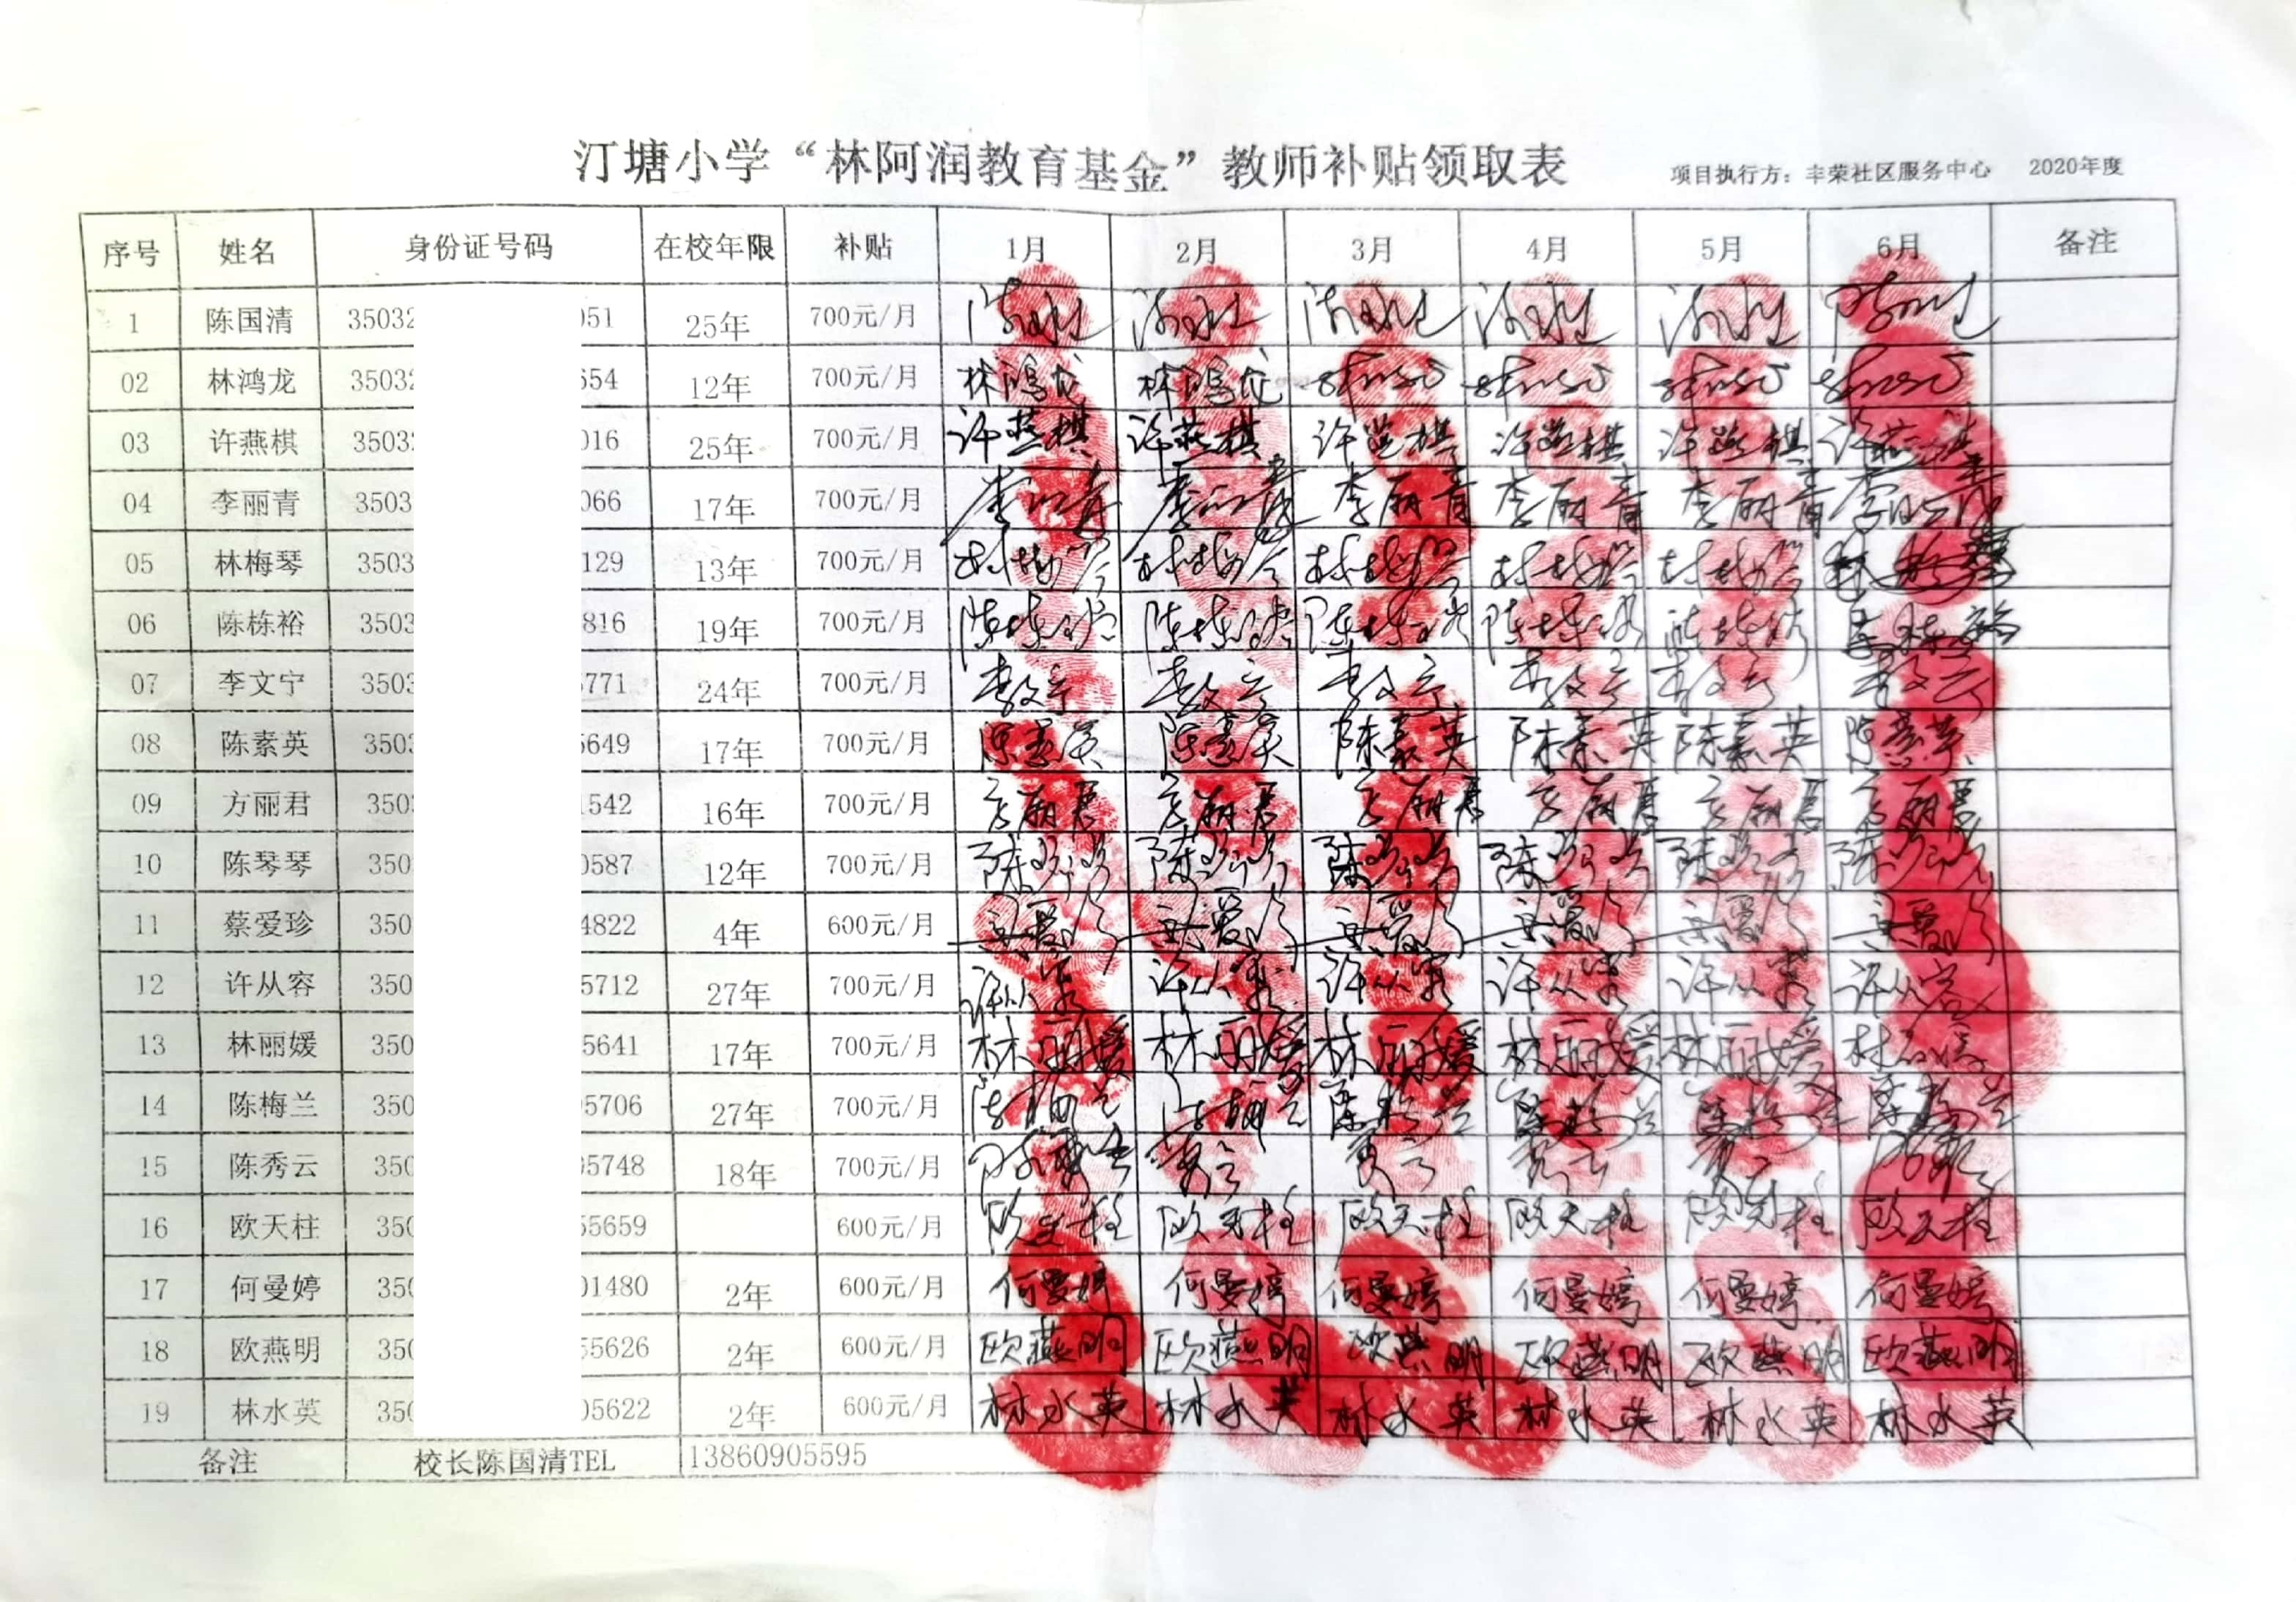 汀塘小学“林阿润教育基金”教师补贴领取表 项目执行方：丰荣社区服务中心 2020年度
序号 姓名 身份证号码 在校年限 补贴 1月 2月 3月 4月 5月 6月 备注
1 陈国清 35032 051 25年 700元/月
02 林鸿龙 35032 654 12年 700元/月 林鸿龙 林鸿龙
03 许燕棋 3503 016 25年 700元/月 许燕棋 许燕棋 许燕棋 许燕棋 许燕棋 许燕棋
04 李丽青 3503 066 17年 700元/月 李丽青 李丽青 李丽青 李丽青 李丽青 李丽青
05 林梅琴 3503 129 13年 700元/月 林梅琴 林梅琴 林梅琴 林梅琴 林梅琴 林梅琴
06 陈栋裕 3503 816 19年 700元/月 陈栋裕 陈栋裕 陈栋裕 陈栋裕 陈栋裕 陈栋裕
07 李文宁 3503 771 24年 700元/月 李文宁 李文宁 李文宁 李文宁 李文宁 李文宁
08 陈素英 350 5649 17年 700元/月 陈素英 陈素英 陈素英 陈素英 陈素英 陈素英
09 方丽君 350 1542 16年 700元/月 方丽君 方丽君 方丽君 方丽君 方丽君 方丽君
10 陈琴琴 350 0587 12年 700元/月 陈琴琴 陈琴琴 陈琴琴 陈琴琴 陈琴琴 陈琴琴
11 蔡爱珍 350 4822 4年 600元/月 蔡爱珍 蔡爱珍 蔡爱珍 蔡爱珍 蔡爱珍 蔡爱珍
12 许从容 350 5712 27年 700元/月 许从容 许从容 许从容 许从容 许从容 许从容
13 林丽媛 350 5641 17年 700元/月 林丽媛 林丽媛 林丽媛 林丽媛 林丽媛 林丽媛
14 陈梅兰 350 5706 27年 700元/月 陈梅兰 陈梅兰 陈梅兰 陈梅兰 陈梅兰 陈梅兰
15 陈秀云 350 5748 18年 700元/月
16 欧天柱 350 55659 600元/月 欧天柱 欧天柱 欧天柱 欧天柱 欧天柱 欧天柱
17 何曼婷 350 01480 2年 600元/月 何曼婷 何曼婷 何曼婷 何曼婷 何曼婷 何曼婷
18 欧燕明 350 55626 2年 600元/月 欧燕明 欧燕明 欧燕明 欧燕明 欧燕明 欧燕明
19 林水英 350 05622 2年 600元/月 林水英 林水英 林水英 林水英 林水英 林水英
备注 校长陈国清TEL 13860905595